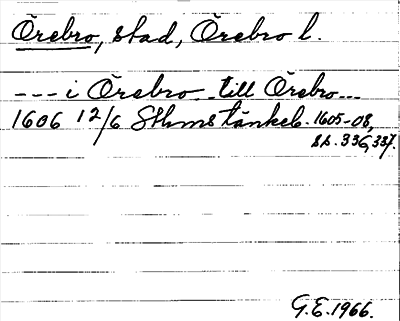 Örebro, stad, Örebro l.
--- i Örebro - till Örebro ---
1606 12/6 Sthms tänkeb. 1605-08,
ss. 336, 337.
G.E. 1966.